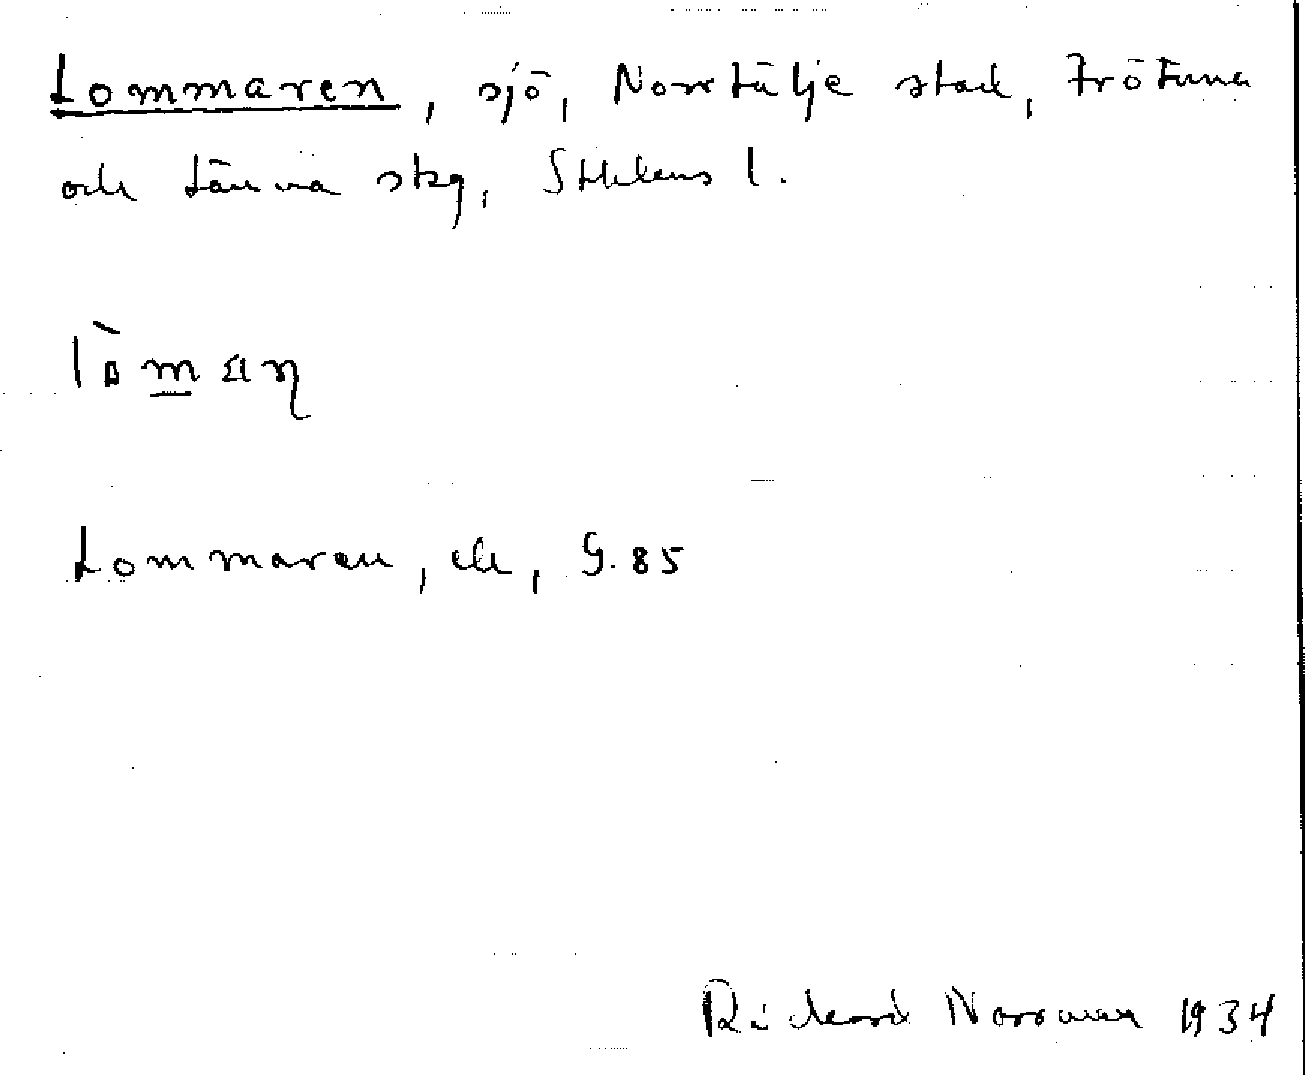 Lommaren, sjö, Norrtälje stad, Frötuna
och Länna skg, Sthlms l.
Lommaren, ek, G. 85
Rickard Norrman 1934